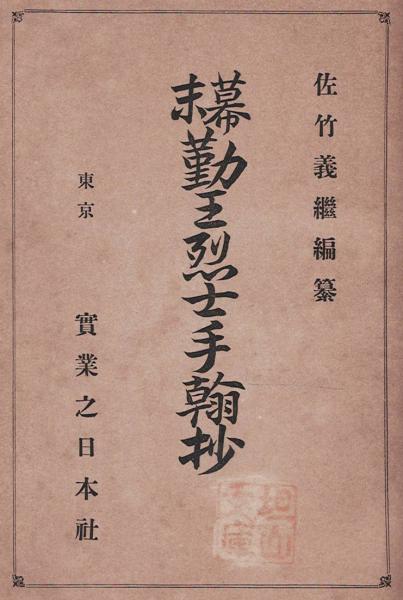 佐竹義繼編纂
幕末勤王烈士手翰抄
東京 實業之日本社